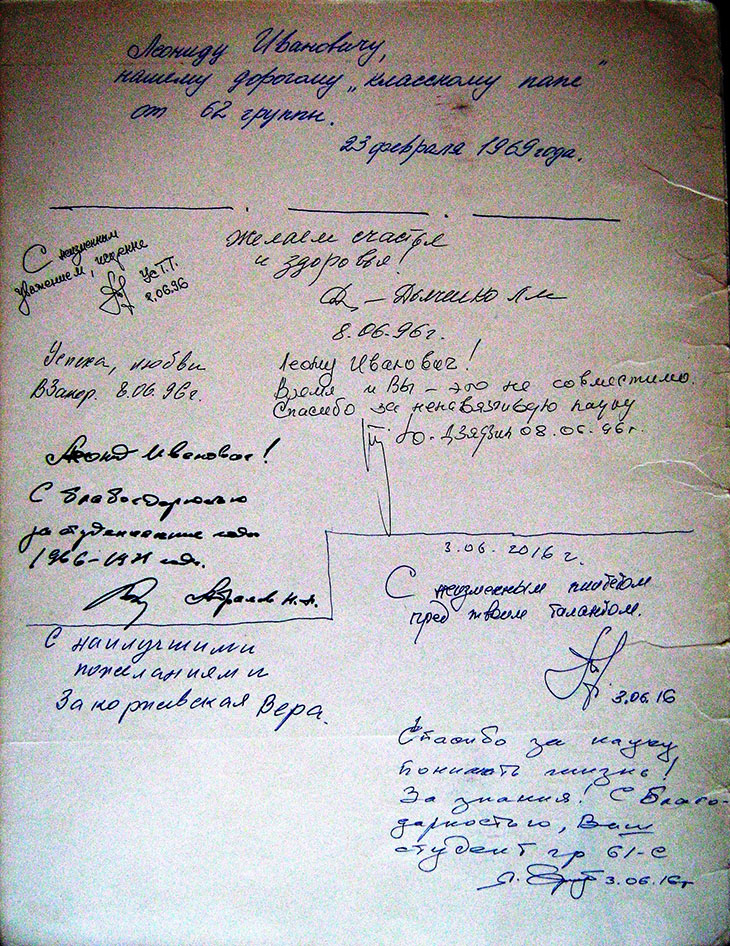 Леониду Ивановичу,
нашему дорогому „классному папе"
от 62 группы.
23 февраля 1969 года.
С неизменным
уважением, искренне
Ус Т.Т.
8.06.96
Желаем счастья
и здоровья!
8.06.96г.
Успеха, любви
8.06.96г.
Леонид Иванович!
Время и Вы – это не совместимо.
Спасибо за ненавязчивую науку
Ю. Дзядзин 08.06.96г.
Леонид Иванович!
С благодарностью
за студенческие годы
1966-1971 годы.
3.06.2016 г.
С неизменным пиететом
пред твоим талантом.
3.06.16
С наилучшими
пожеланиями
Закоржевская Вера.
Спасибо за науку
понимать жизнь!
За знания! С благо-
дарностью, Ваш
студент гр 61-С
3.06.16г